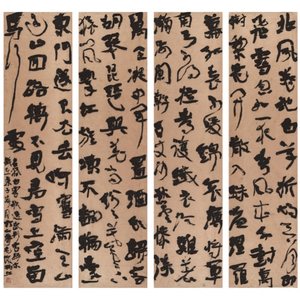 北風捲地白草折胡天八月
即飛雪忽如一夜春風來千
樹萬樹梨花開散入珠簾濕
羅幕狐裘不煖錦衾薄將軍
角弓不得控都護鐵衣冷難著
瀚海闌干百丈冰愁雲慘淡
萬里凝中軍置酒飲歸客
胡琴琵琶與羌笛紛紛暮雪
下轅門風掣紅旗凍不翻輪臺
東門送君去去時雪滿天
山路山迴路轉不見君雪上空留
馬行處